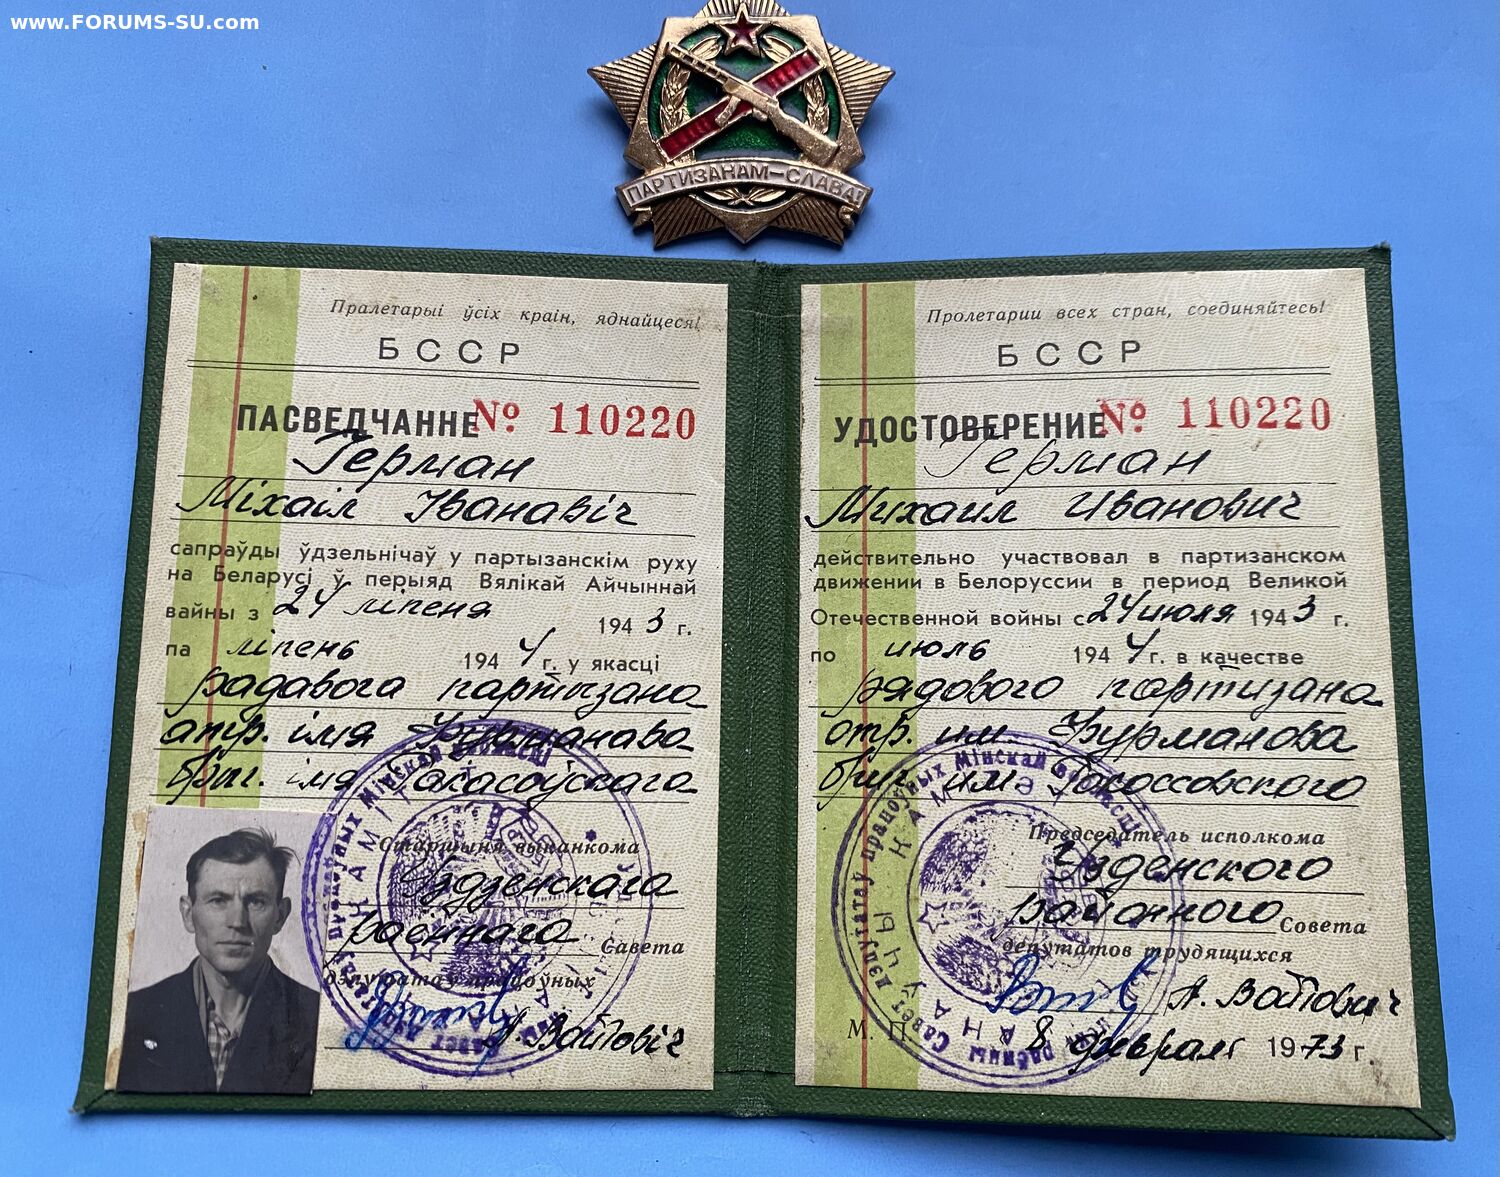 www.FORUMS-SU.com
ПАРТИЗАНАМ—СЛАВА!
Пралетарыі ўсіх краін, яднайцеся!
БССР
ПАСВЕДЧАННЕ № 110220
Герман
Міхаіл Іванавіч
сапраўды ўдзельнічаў у партызанскім руху
на Беларусі ў перыяд Вялікай Айчыннай
вайны з 24 ліпеня 1943 г.
па ліпень 1944 г. у якасці
радавога партызана
атр. імя Фурманава
брыг. імя Ракасоўскага
Старшыня выканкома
Уздзенскага
раённага Савета
дэпутатаў працоўных
А. Вайтовіч
Пролетарии всех стран, соединяйтесь!
БССР
УДОСТОВЕРЕНИЕ № 110220
Герман
Михаил Иванович
действительно участвовал в партизанском
движении в Белоруссии в период Великой
Отечественной войны с 24 июля 1943 г.
по июль 1944 г. в качестве
рядового партизана
отр. им. Фурманова
бриг. им. Рокоссовского
Председатель исполкома
Узденского
районного Совета
депутатов трудящихся
А. Войтович
М. П. 8 февраля 1973 г.